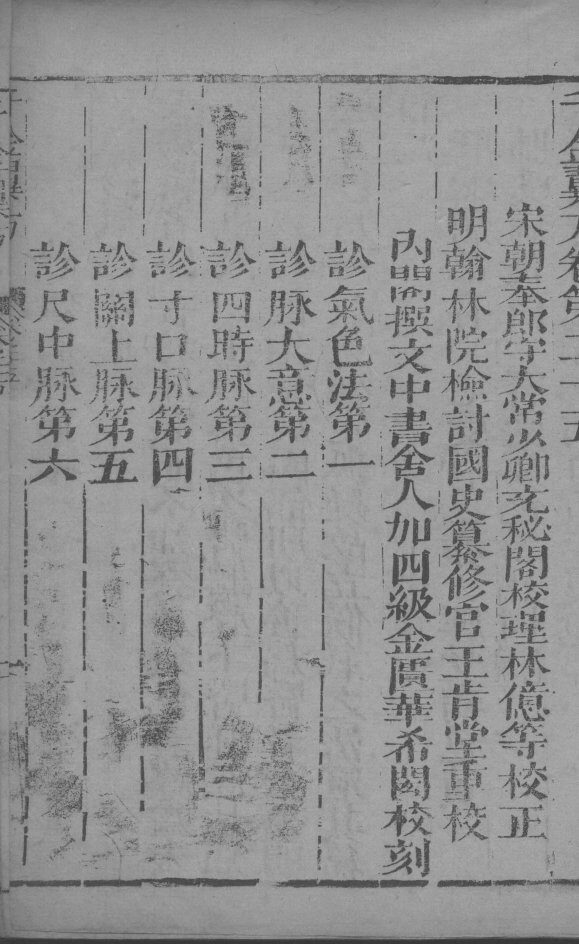 千金翼方卷第二十五
宋朝奉郎守太常少卿充秘閣校理林億等校正
明翰林院檢討國史纂修官王肯堂重校
內閣撰文中書舍人加四級金匱華希閎校刻
診氣色法第一
診脉大意第二
診四時脉第三
診寸口脉第四
診關上脉第五
診尺中脉第六
千金翼方